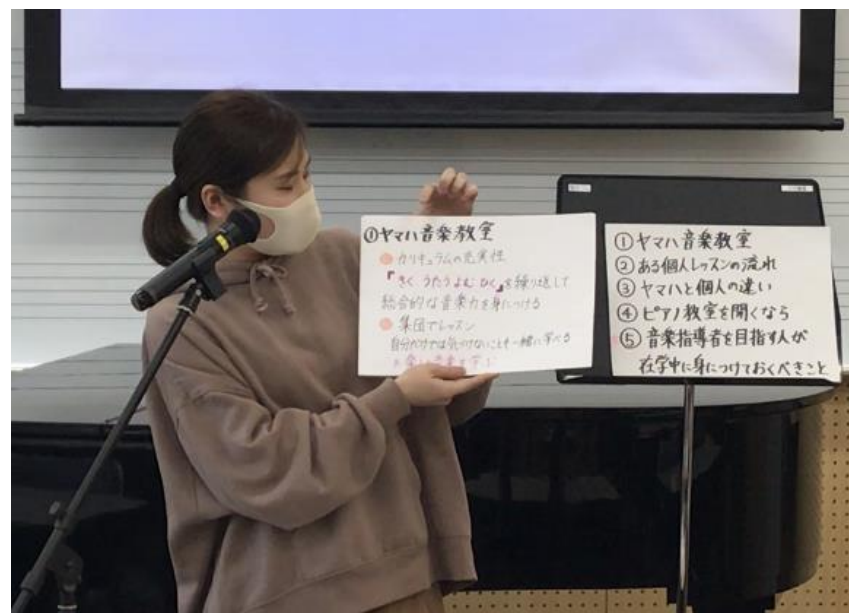 ①ヤマハ音楽教室
カリキュラムの充実性
『きく うたう よむ ひく』を繰り返して
総合的な音楽力を身につける
集団でレッスン
自分だけでは気づけないことも一緒に学べる
音楽を学ぶ
①ヤマハ音楽教室
②ある個人レッスンの流れ
③ヤマハと個人の違い
④ピアノ教室を開くなら
⑤音楽指導者を目指す人が
在学中に身につけておくべきこと